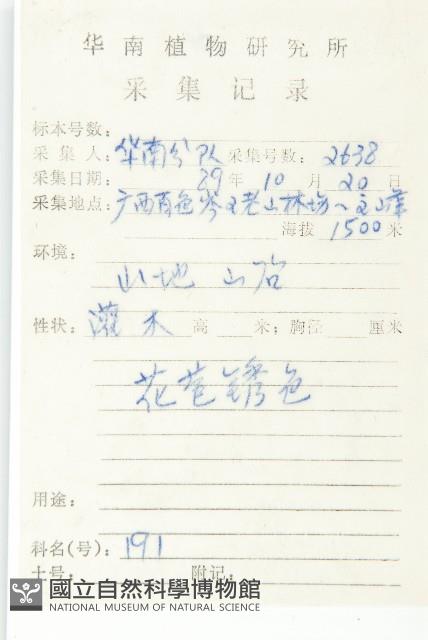 华南植物研究所
采集记录
标本号数:
采集人: 华南分队 采集号数: 2638
采集日期: 89年10月20日
采集地点: 广西百色岑王老山林场~主山峯
海拔 1500 米
环境:
山地 山
性状: 灌木 高 米; 胸径 厘米
花苞锈色
用途:
科名(号): 191
土号: 附记:
國立自然科學博物館
NATIONAL MUSEUM OF NATURAL SCIENCE